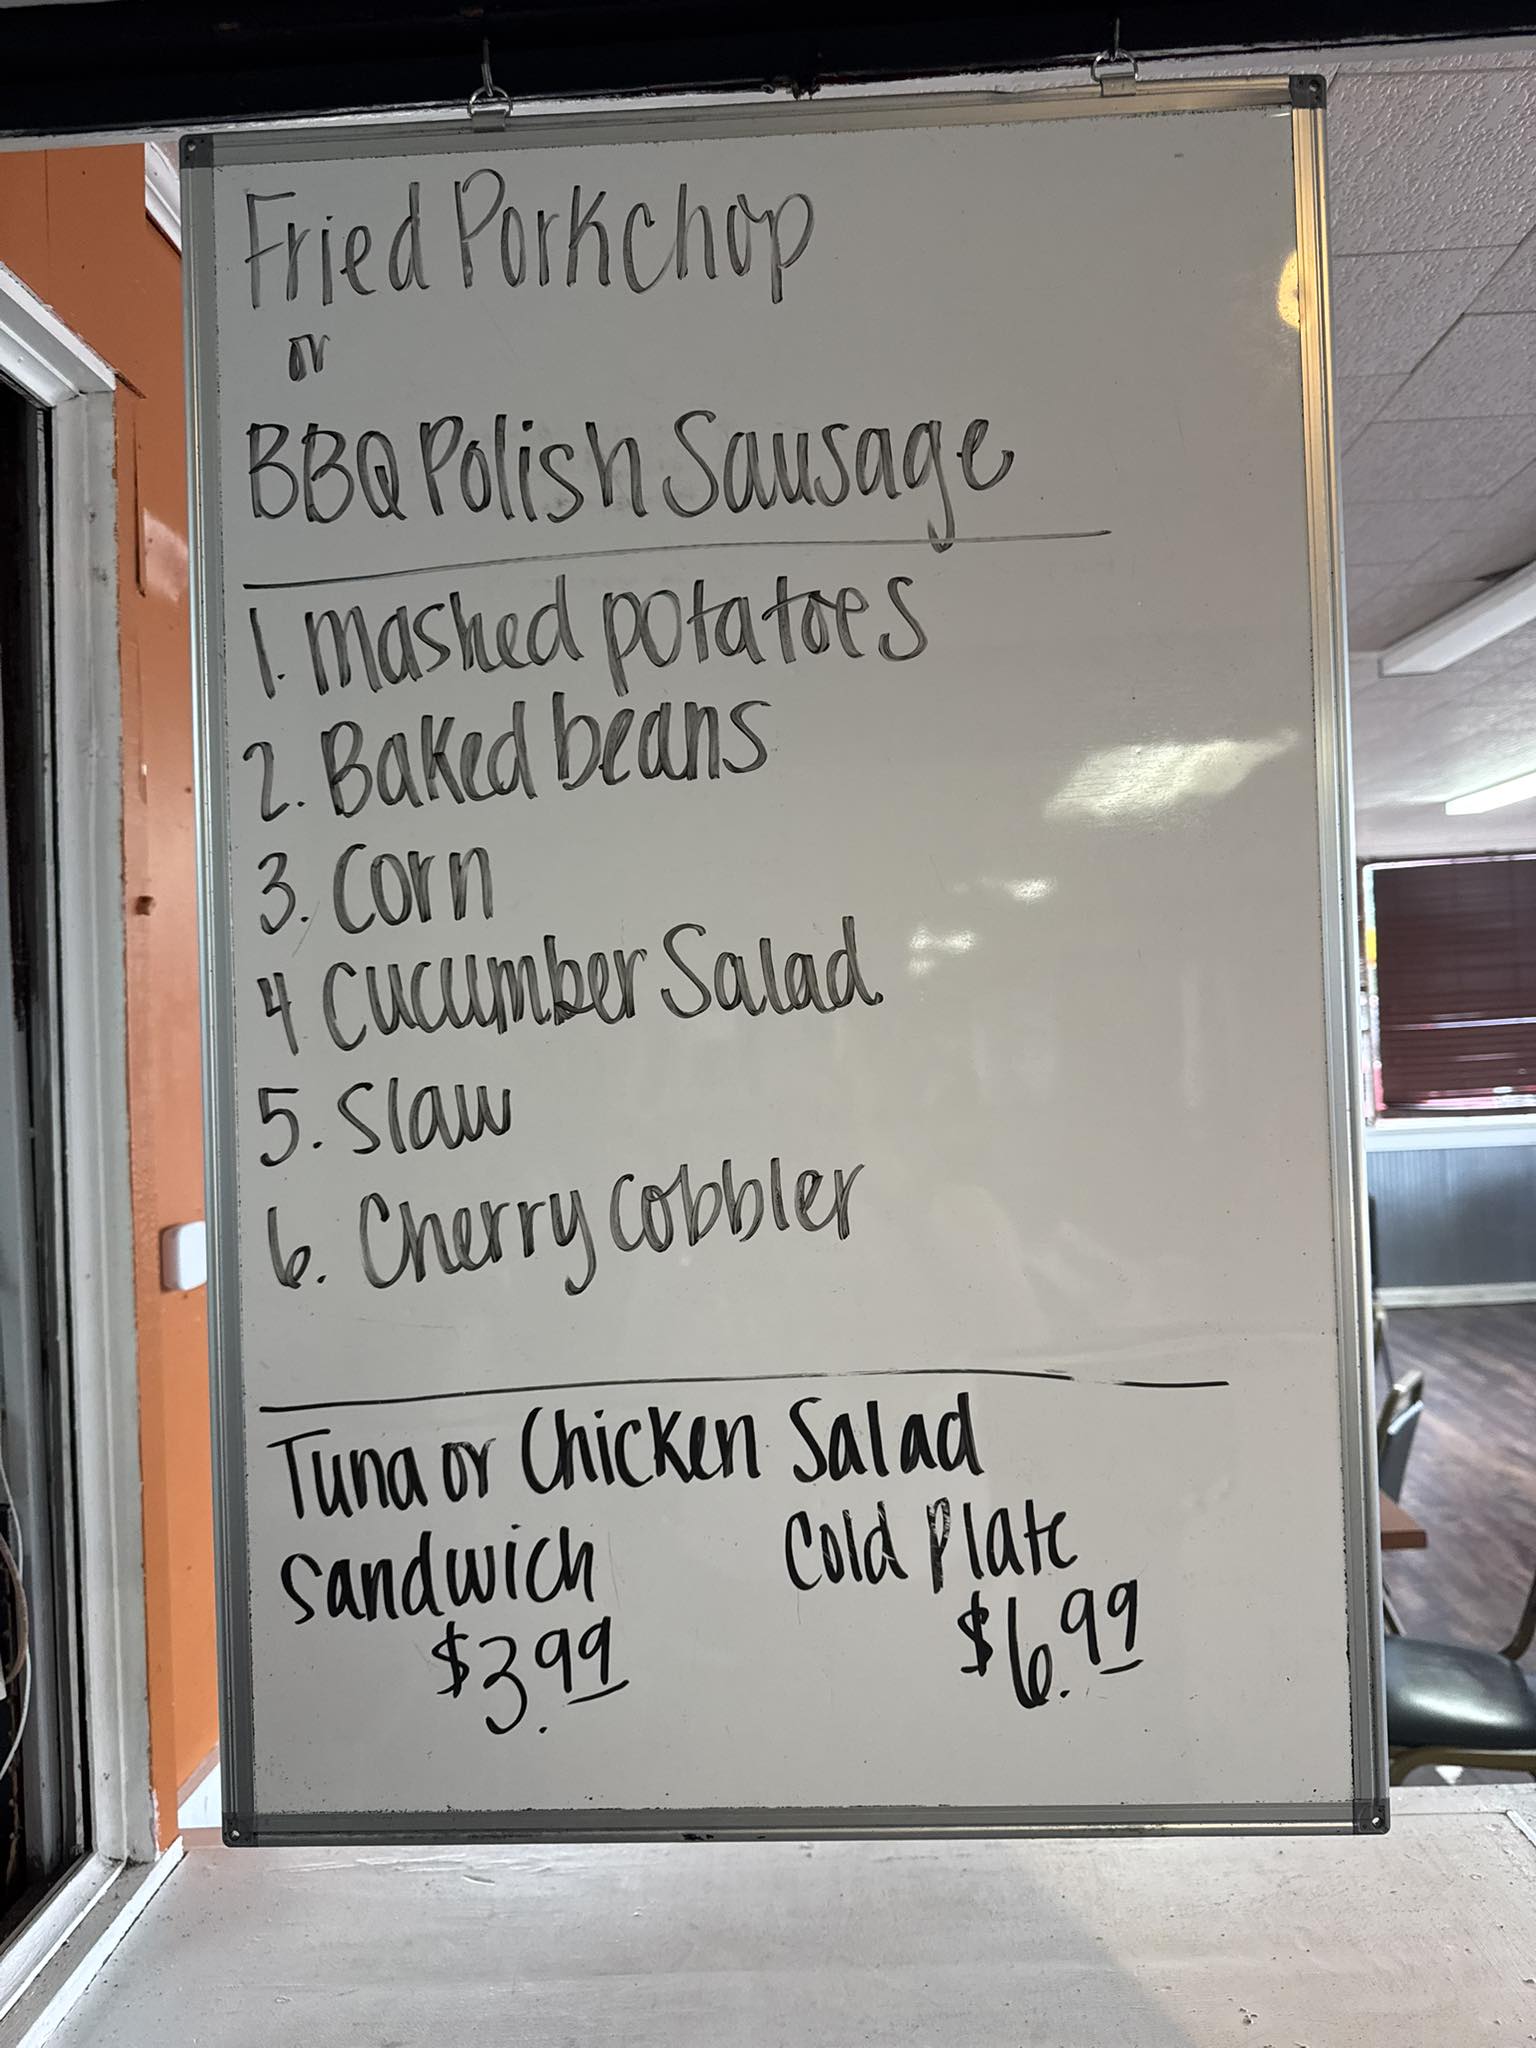 Fried Porkchop
or
BBQ Polish Sausage
1. mashed potatoes
2. Baked beans
3. Corn
4 Cucumber Salad
5. Slaw
6. Cherry Cobbler
Tuna or Chicken Salad
Sandwich Cold Plate
$3.99 $6.99